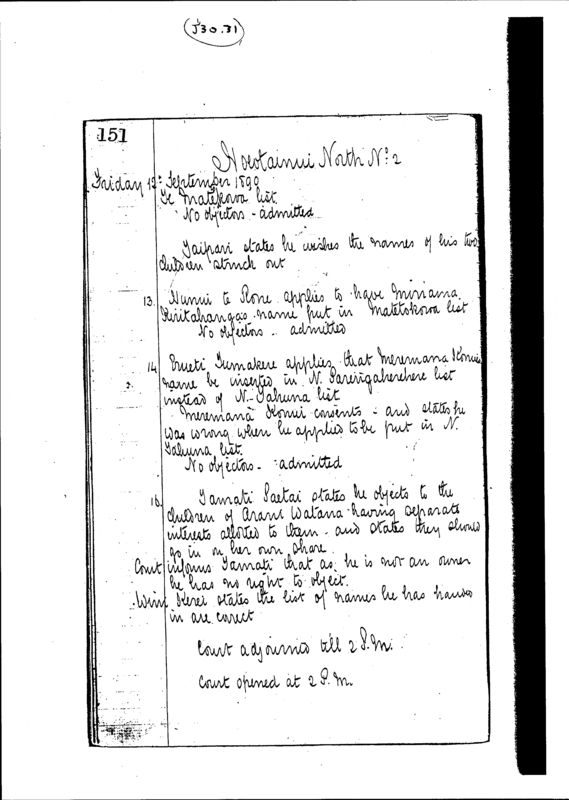 J30.31
151
Hootainui North No 2
Friday 12th September 1890
Te Matekova list
No objectors - admitted
Taipari states he wishes the names of his two
children struck out
13. applies to have Miriama
name put in list
No objectors - admitted
14. Erueti applies that Meremana Konui
name be inserted in N. Parengaherehere list
instead of N. Tahuna list
Meremana Konui consents - and states he
was wrong when he applied to be put in N.
Tahuna list.
No objectors - admitted
Tamati Paetai states he objects to the
children of Watana having separate
interests allotted to them - and states they should
go in on her own share.
Court informs Tamati that as he is not an owner
he has no right to object.
Kerei states the list of names he has handed
in are corect
Court adjourned till 2 P.M.
Court opened at 2 P.M.